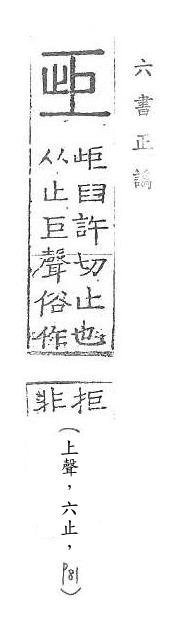 六書正譌
歫
歫臼許切止也
从止巨聲俗作
拒
非
(上聲，六止，P81)